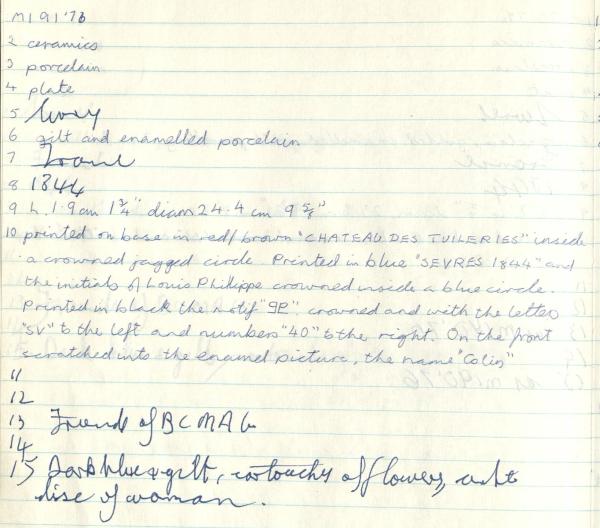 M191'76
2 ceramics
3 porcelain
4 plate
5
6 gilt and enamelled porcelain
7
8 1844
9 h. 1.9cm 1 3/4" diam 24.4 cm 9 5/8"
10 printed on base in red/brown "CHATEAU DES TUILERIES" inside
a crowned jagged circle. Printed in blue "SEVRES 1844" and
the initials of Louis Phillippe crowned inside a blue circle.
Printed in black the motif "9P" crowned and with the letter
"SV" to the left and numbers "40" to the right. On the front
scratched into the enamel picture, the name "Colin"
11
12
13 Friends of BCMAG
14
15 Dark blue & gilt, cartouches of flowers, centre
disc of woman.